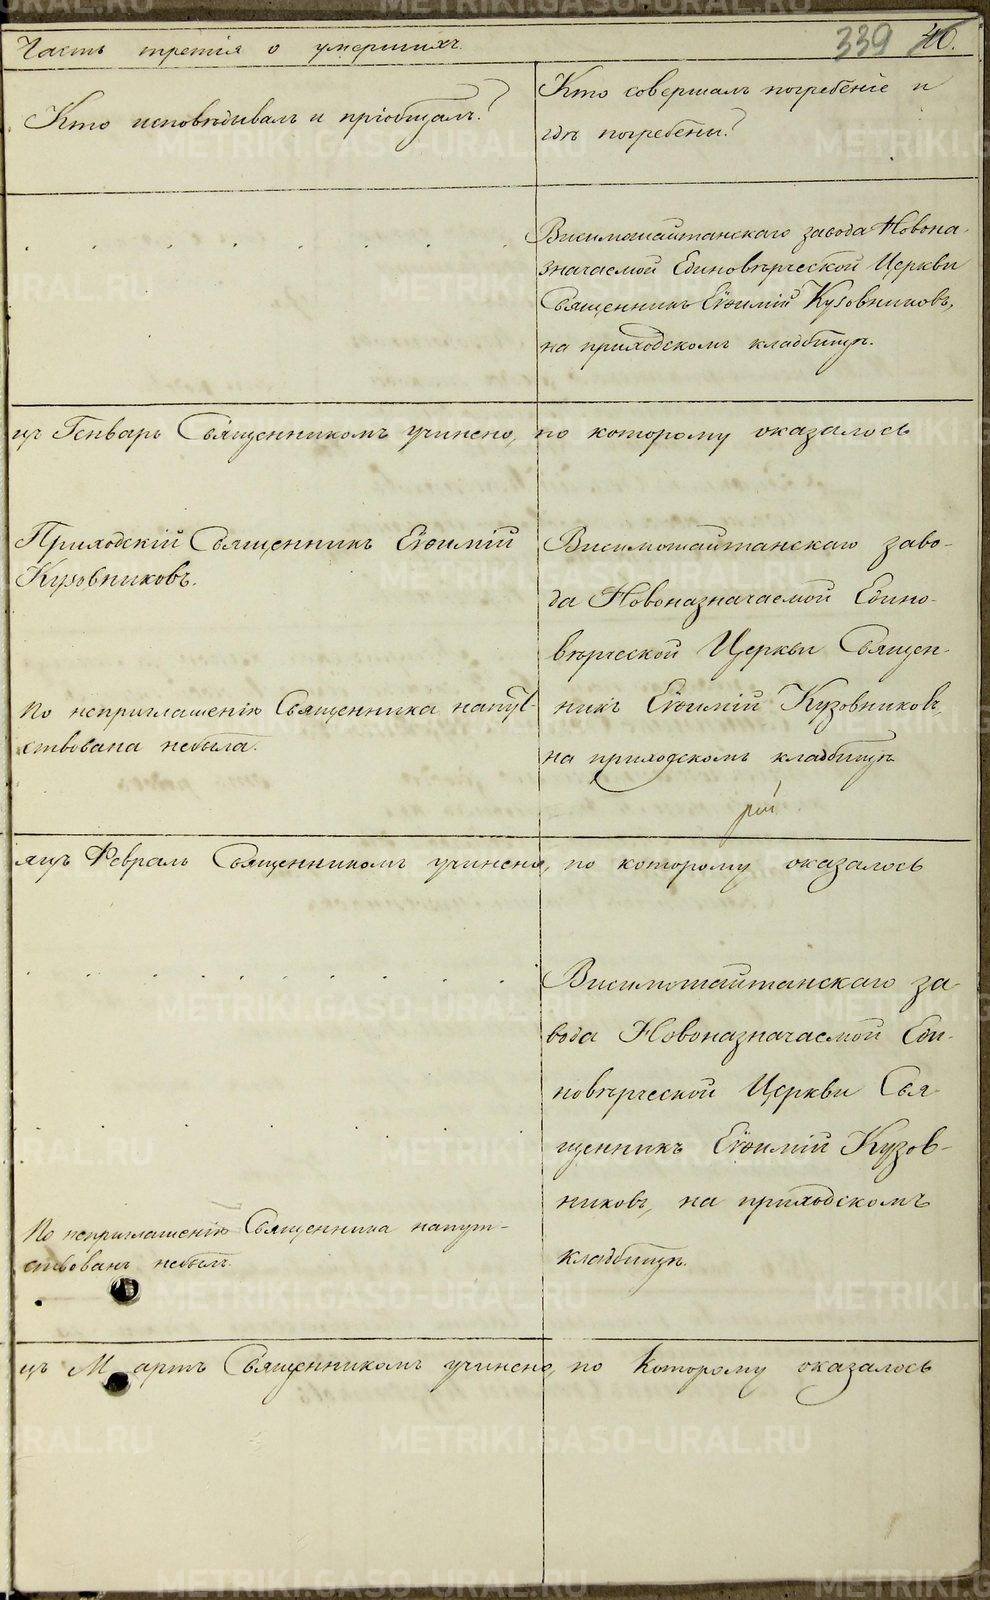 Часть третія о умершихъ.
339
Кто исповѣдывалъ и пріобщалъ?
Кто совершалъ погребеніе и
гдѣ погребены?
Висимошайтанскаго завода Новона-
значаемой Единовѣрческой Церкви
Священникъ Евѳимій Кузовниковъ,
на приходскомъ кладбищѣ.
цъ Генварь Священникомъ учинено, по которому оказалось
Приходскій Священникъ Евѳимій
Кузовниковъ.
По неприглашенію Священника напут-
ствована небыла.
Висимошайтанскаго заво-
да Новоназначаемой Едино-
вѣрческой Церкви Священ-
никъ Евѳимій Кузовниковъ,
на приходскомъ кладбищѣ
яцъ Февраль Священникомъ учинено, по которому оказалось
Висимошайтанскаго за-
вода Новоназначаемой Еди-
новѣрческой Церкви Свя-
щенникъ Евѳимій Кузов-
никовъ, на приходскомъ
кладбищѣ.
По неприглашенію Священника напут-
ствованъ небылъ.
цъ Мартъ Священникомъ учинено, по Которому оказалось
METRIKI.GASO-URAL.RU